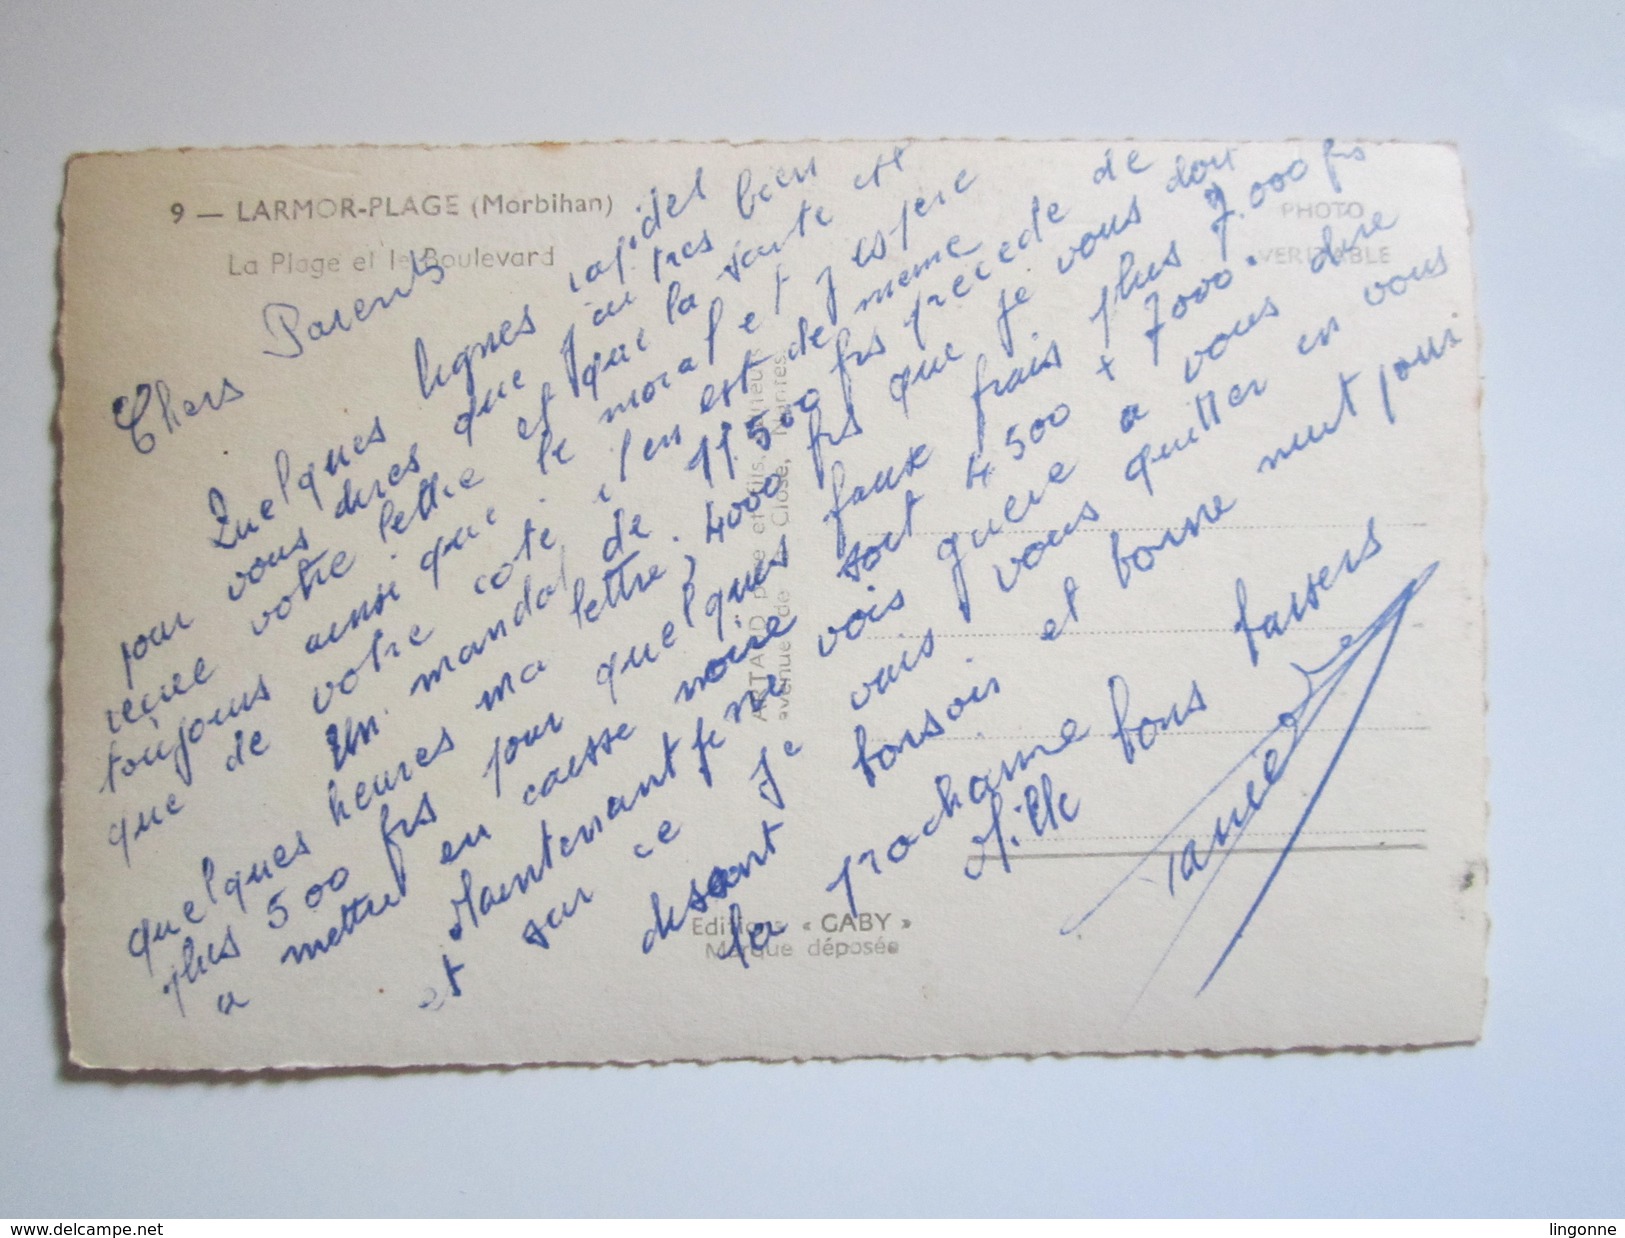 9 — LARMOR-PLAGE (Morbihan)
La Plage et le Boulevard
PHOTO
VERITABLE
ARTAUD père et fils, Éditeurs
avenue de la Close, Nantes
Editions « GABY »
Marque déposée
Chers Parents
Quelques lignes rapides
pour vous dires que j'ai tres bien
recue votre lettre et que la sante est
toujours ainsi que le moral et j'espere
que de votre cote il en est de meme
Un mandat de 11.500 frs precede de
quelques heures ma lettre, 4000 frs que je vous doit
plus 500 frs pour quelques faux frais plus 7.000 frs
a mettre en caisse noire soit 4 500 + 7000.
Maintenant je ne vois guere a vous dire
et sur ce je vais vous quitter en vous
desant bonsoir et bonne nuit pour
la prochaine
Mille bons baisers
www.delcampe.net
lingonne